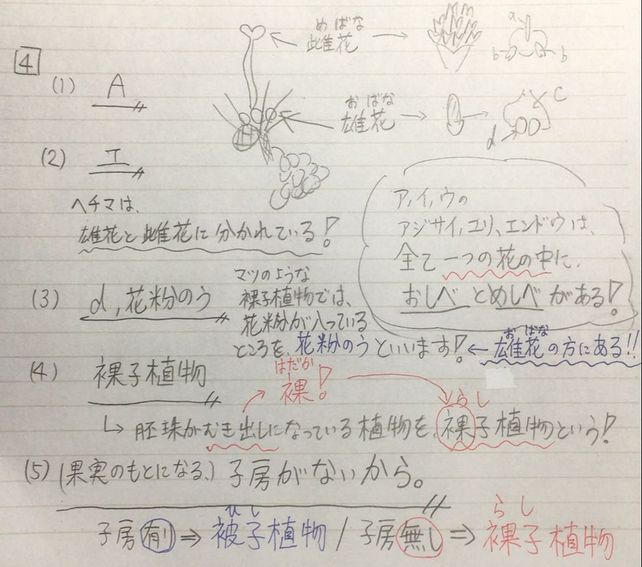 めばな
雌花
a
b
b
4
(1) A
おばな
雄花
c
d
(2) エ
ヘチマは、
雄花と雌花に分かれている!
ア,イ,ウの
アジサイ,ユリ,エンドウは、
全て一つの花の中に、
おしべとめしべがある!
(3) d,花粉のう
マツのような
裸子植物では、
花粉が入っている
ところを、花粉のうといいます!
おばな
←雄花の方にある!!
(4) 裸子植物
はだか
裸!
らし
↳胚珠がむき出しになっている植物を、裸子植物という!
(5) (果実のもとになる、)子房がないから。
ひし
らし
子房有り⇒被子植物/子房無し⇒裸子植物